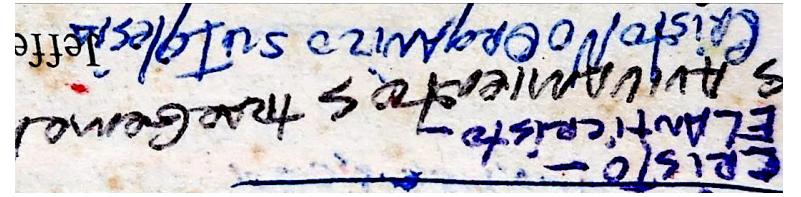 CRISTO —
EL ANTICRISTO —
AVIVAMIENTOS trae
CRISTO NO ORGANIZO SU IGlesia
Jeffe